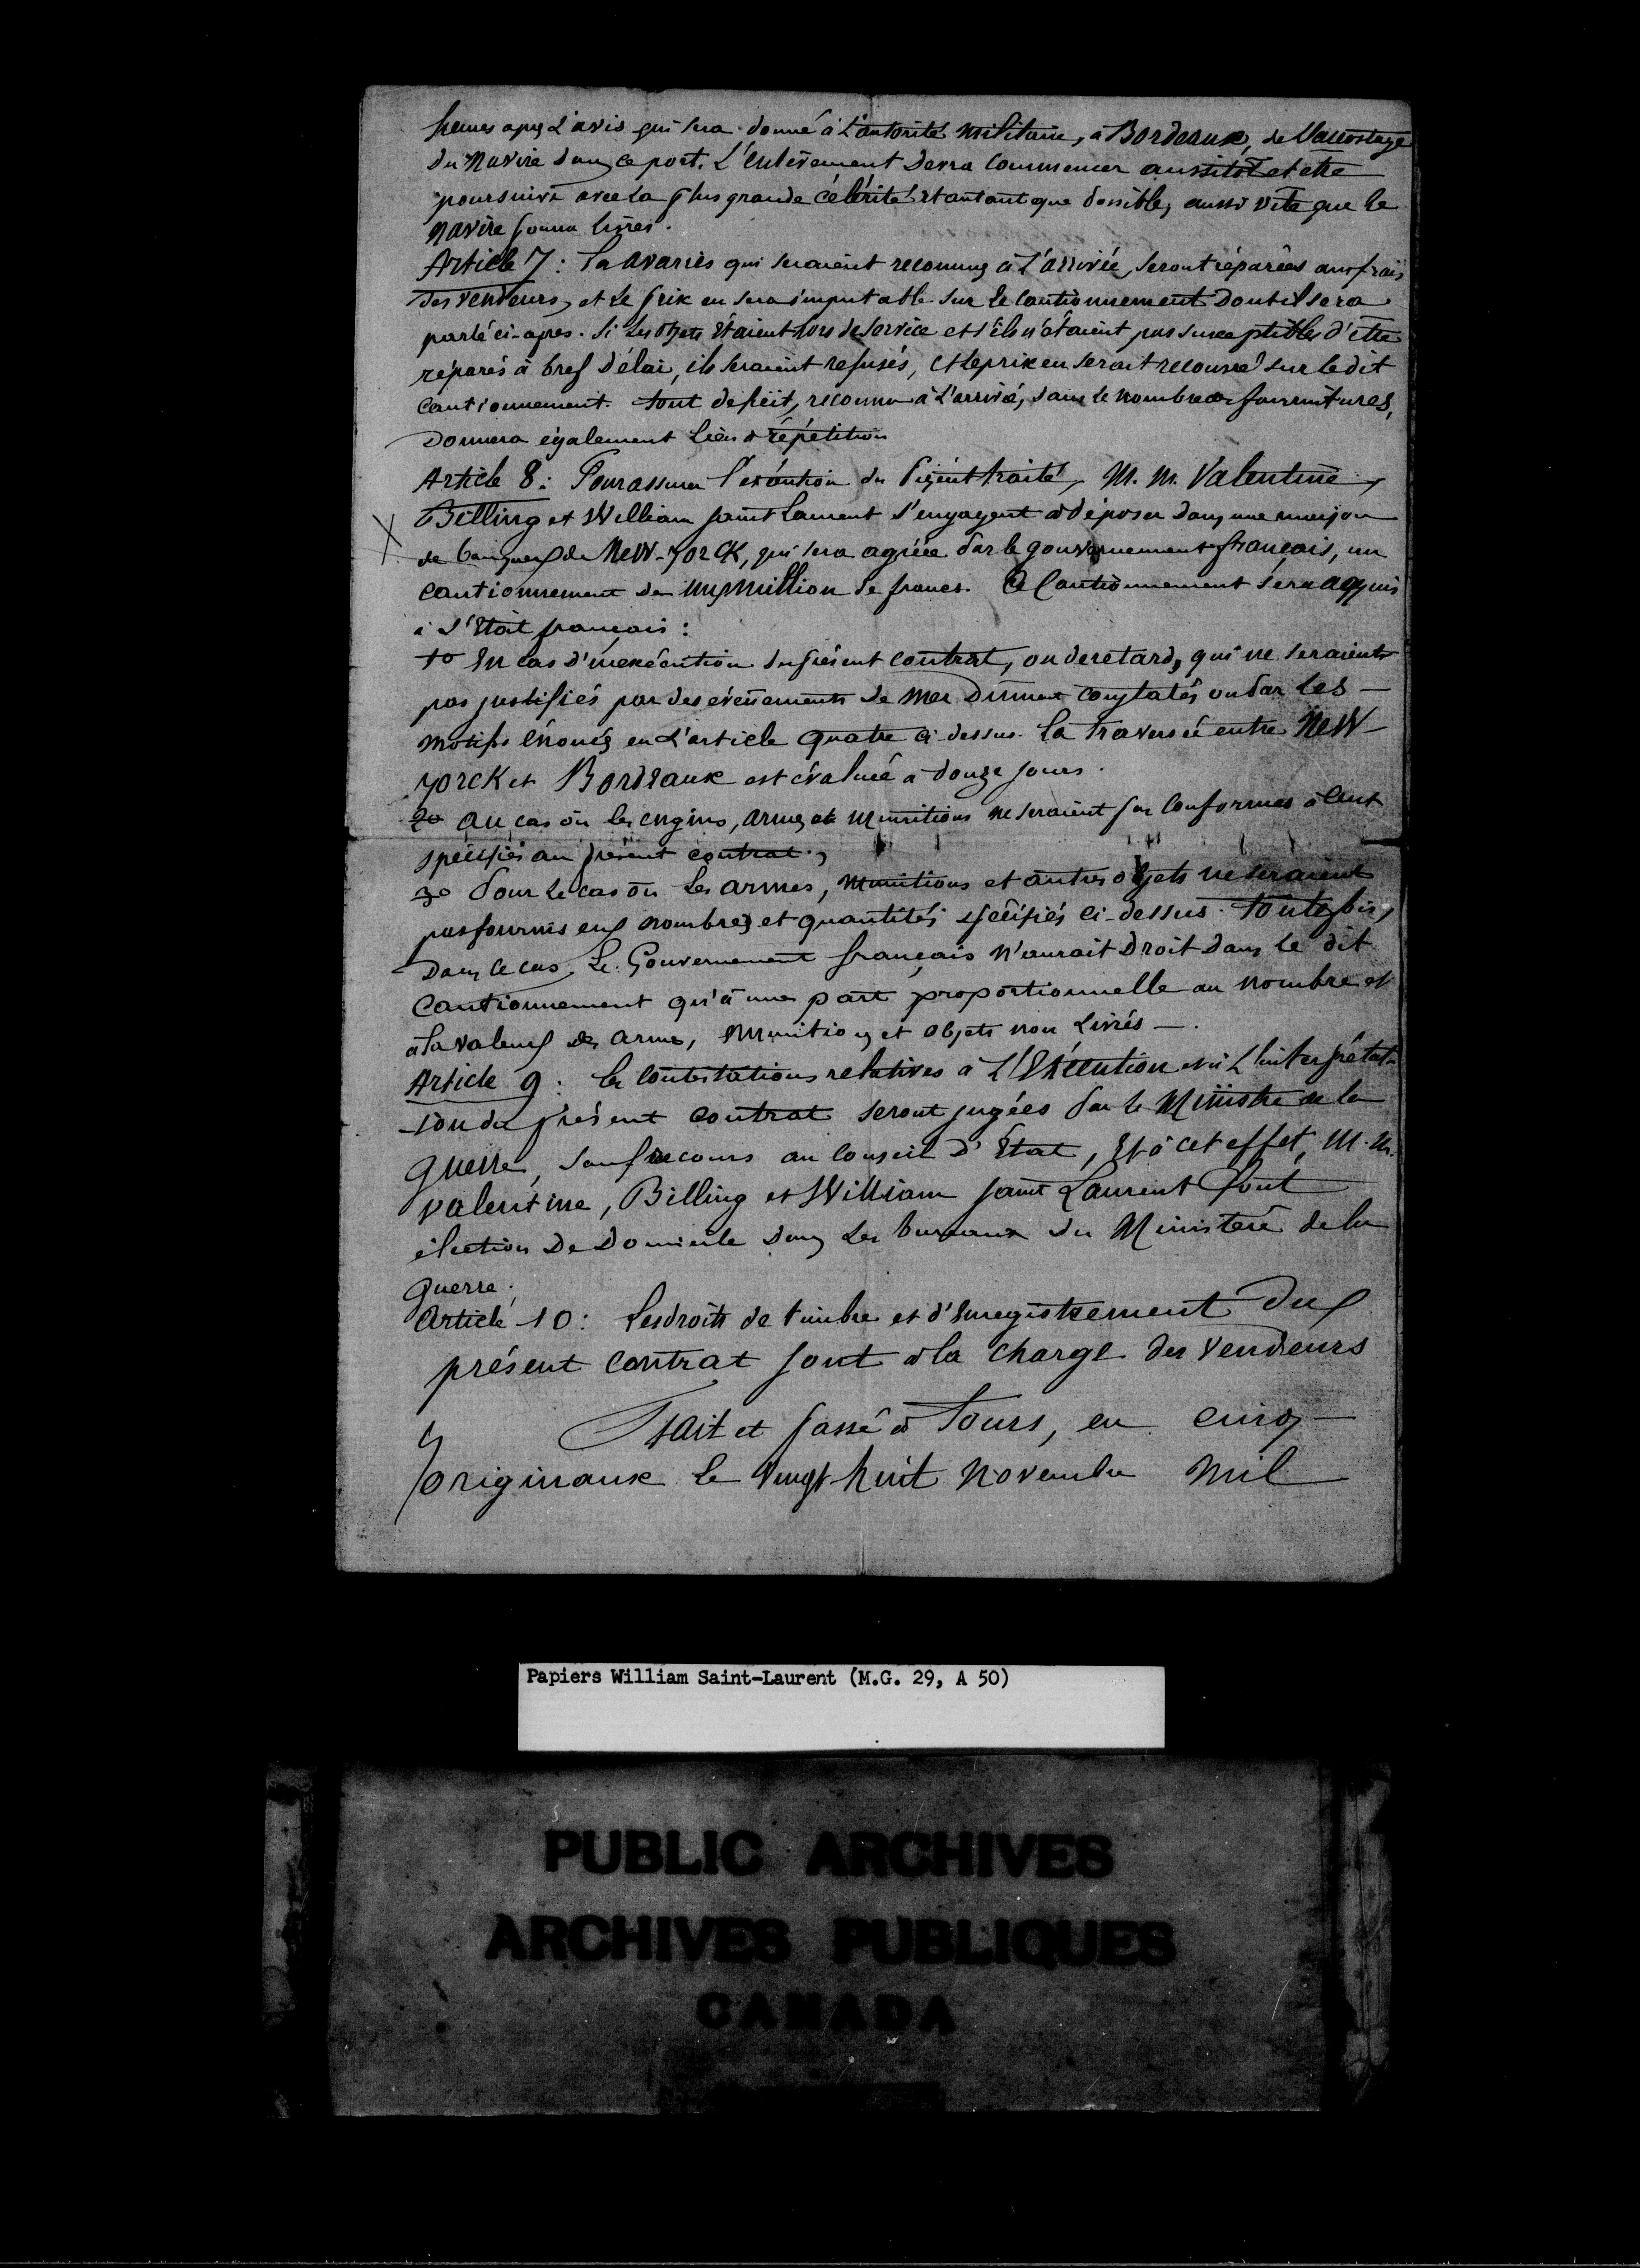 heures après l'avis qui sera donné à l'autorité militaire, à Bordeaux, de l'accostage
du navire dans ce port. L'enlèvement devra commencer aussitôt et être
poursuivi avec la plus grande célérité et autant que possible, aussi vite que le
navire pourra livrer.
Article 7: Les avaries qui seraient reconnues à l'arrivée, seront réparées aux frais
des vendeurs, et le prix en sera imputable sur le cautionnement dont il sera
parlé ci-après. Si les objets étaient hors de service et s'ils n'étaient pas susceptibles d'être
réparés à bref délai, ils seraient refusés, et le prix en serait recouvré sur le dit
cautionnement. Tout déficit, reconnu à l'arrivée, dans le nombre des fournitures,
Donnera également lieu à répétition
Article 8: Pour assurer l'exécution du présent traité, M. M. Valentine,
Billing et William Saint Laurent s'engagent à déposer dans une maison
de banque de New-Yorck, qui sera agréée par le gouvernement français, un
cautionnement de un million de francs. Ce cautionnement sera acquis
à l'Etat français:
1o En cas d'inexécution du présent contrat, ou de retard, qui ne seraient
pas justifiés par des évènements de mer dûment constatés ou par les
motifs énoncés en l'article quatre ci-dessus. La traversée entre New-
Yorck et Bordeaux est évaluée à douze jours.
2o Au cas où les engins, armes et munitions ne seraient pas conformes à ceux
spécifiés au présent contrat;
3o Pour le cas où les armes, munitions et autres objets ne seraient
pas fournis en nombres et quantités spécifiés ci-dessus. Toutefois,
Dans ce cas, le Gouvernement français n'aurait droit dans le dit
Cautionnement qu'à une part proportionnelle au nombre et
à la valeur des armes, munitions et objets non livrés —.
Article 9: Les contestations relatives à l'Exécution et à l'interprétat-
-ion du présent contrat seront jugées par le Ministre de la
Guerre, sauf recours au conseil d'Etat, Et à cet effet, M. M.
Valentine, Billing et William Saint Laurent font
élection de Domicile dans les bureaux du Ministère de la
Guerre.
Article 10: Les droits de timbre et d'Enregistrement du
présent contrat sont à la charge des vendeurs
Fait et passé à Tours, en cinq
originaux le vingt-huit novembre mil
Papiers William Saint-Laurent (M.G. 29, A 50)
PUBLIC ARCHIVES
ARCHIVES PUBLIQUES
CANADA